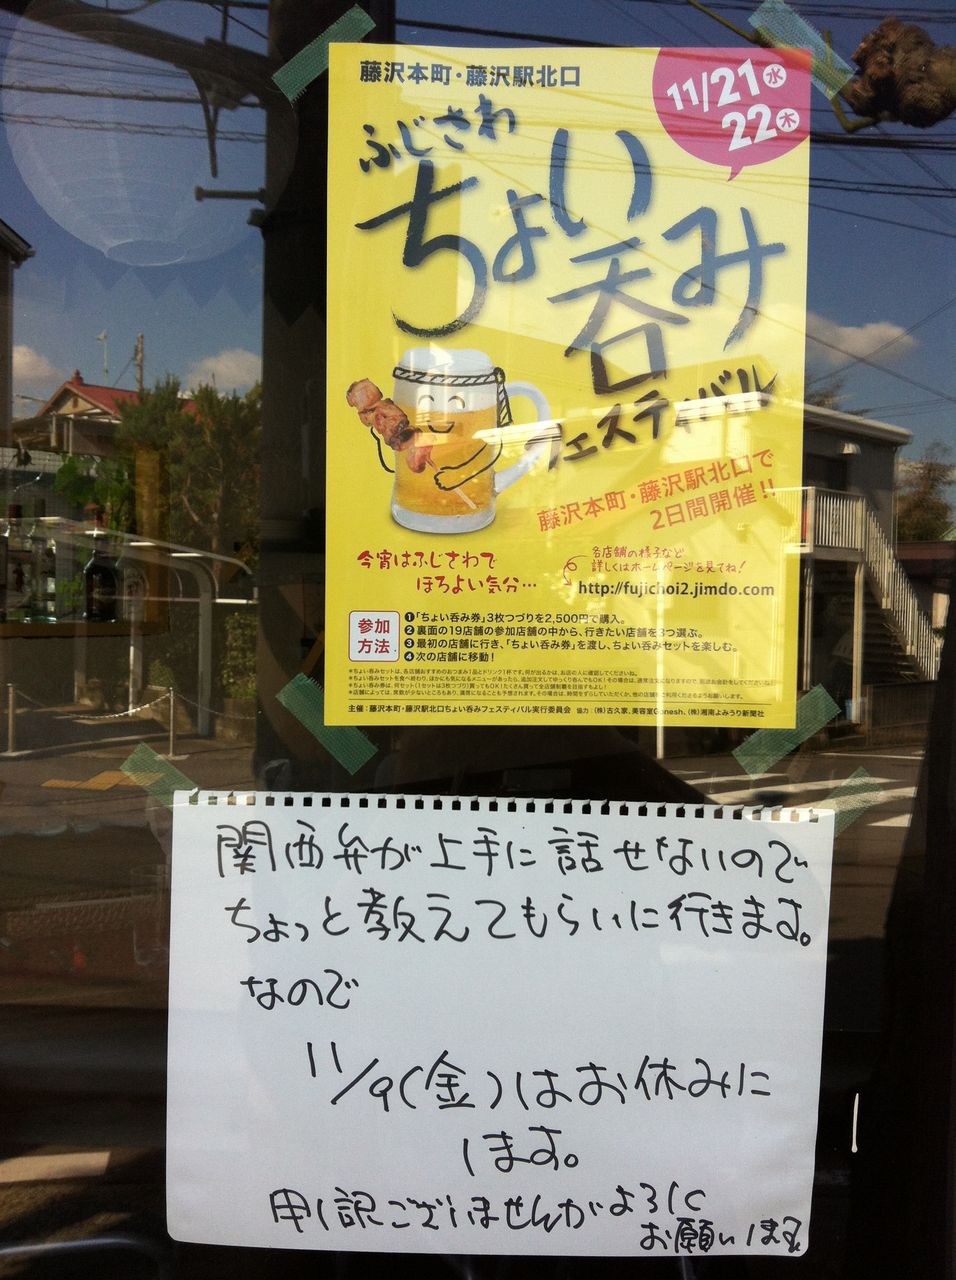 藤沢本町・藤沢駅北口
11/21水
22木
ふじさわ
ちょい
呑み
フェスティバル
藤沢本町・藤沢駅北口で
2日間開催!!
今宵はふじさわで
ほろよい気分…
各店舗の様子など
詳しくはホームページを見てね!
http://fujichoi2.jimdo.com
参加
方法
1「ちょい呑み券」3枚つづりを2,500円で購入。
2裏面の19店舗の参加店舗の中から、行きたい店舗を3つ選ぶ。
3最初の店舗に行き、「ちょい呑み券」を渡し、ちょい呑みセットを楽しむ。
4次の店舗に移動!
主催:藤沢本町・藤沢駅北口ちょい呑みフェスティバル実行委員会 協力:(株)古久家、美容室Gonesh、(株)湘南よみうり新聞社
関西弁が上手に話せないので
ちょっと教えてもらいに行きます。
なので
11/9(金)はお休みに
します。
申し訳ございませんがよろしく
お願いします